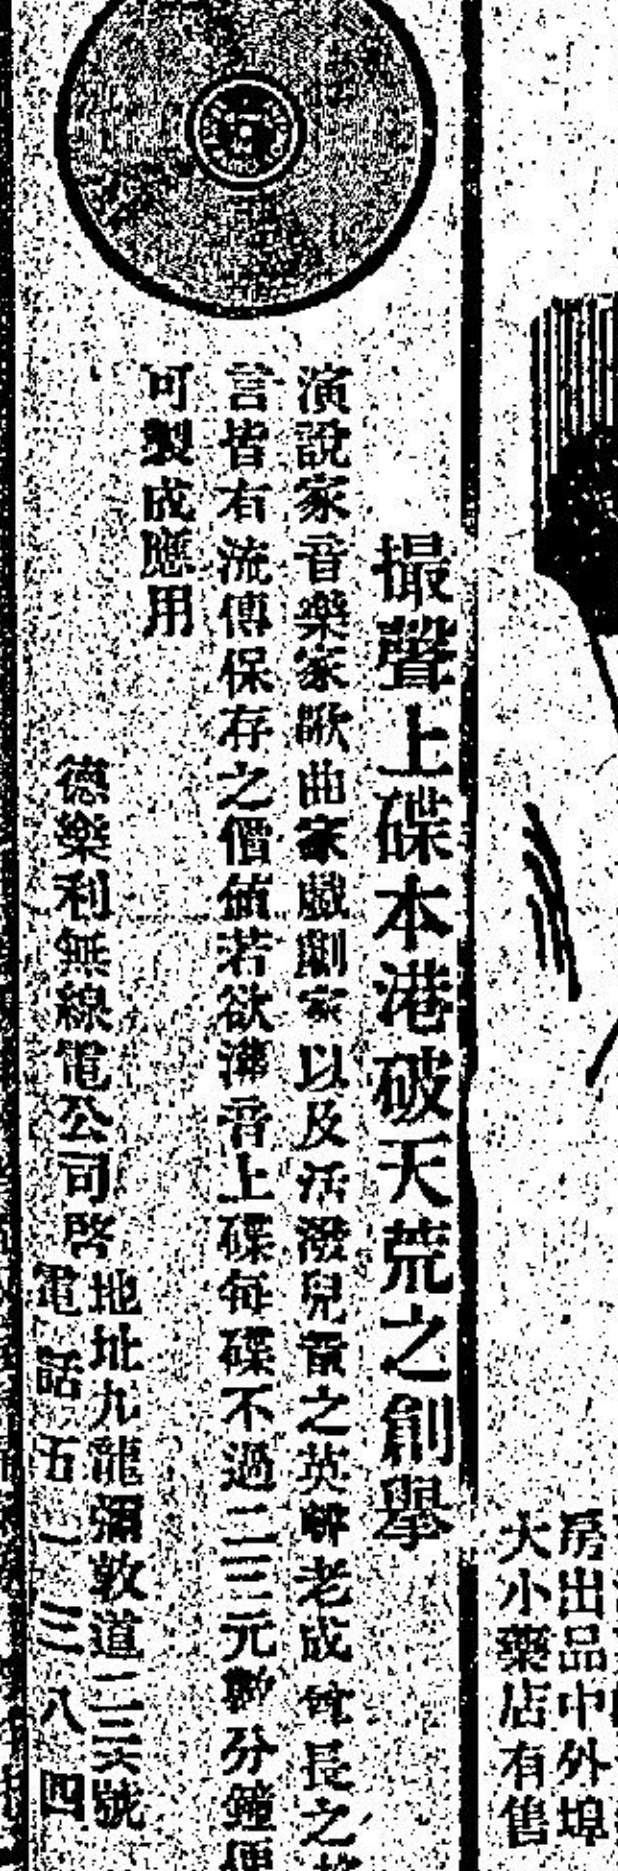 房出品中外埠
大小藥店有售
撮聲上碟本港破天荒之創舉
演說家音樂家歌曲家戲劇家以及活潑兒童之英 老成 長之
言皆有流傳保存之價值若欲 音上碟每碟不過二三元數分鐘便
可製成應用
德樂利無線電公司啓
地址九龍彌敦道 號
電話五一三八四